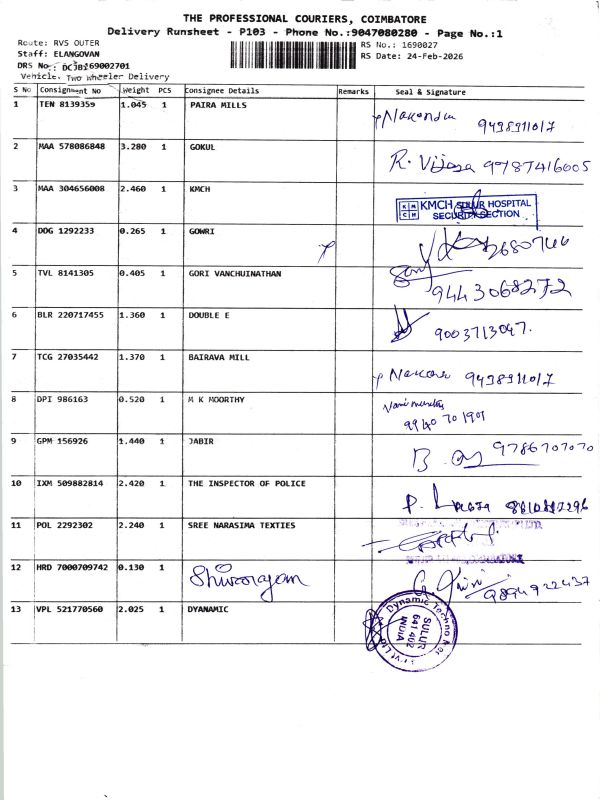 THE PROFESSIONAL COURIERS, COIMBATORE
Delivery Runsheet - P103 - Phone No.:9047080280 - Page No.:1
Route: RVS OUTER
Staff: ELANGOVAN
DRS No.: DCJB169002701
Vehicle. Two Wheeler Delivery
RS No.: 1690027
RS Date: 24-Feb-2026
S No Consignment No Weight PCS Consignee Details Remarks Seal & Signature
1 TEN 8139359 1.045 1 PAIRA MILLS
9498911017
2 MAA 578086848 3.280 1 GOKUL
R. Vijaya 9787416005
3 MAA 304656008 2.460 1 KMCH
KMCH SULUR HOSPITAL
SECURITY SECTION
4 DOG 1292233 0.265 1 GOWRI
5 TVL 8141305 0.405 1 GORI VANCHUINATHAN
9443068272
6 BLR 220717455 1.360 1 DOUBLE E
9003713047.
7 TCG 27035442 1.370 1 BAIRAVA MILL
9498911017
8 DPI 986163 0.520 1 M K MOORTHY
9940 70 1901
9 GPM 156926 1.440 1 JABIR
9786707070
10 IXM 509882814 2.420 1 THE INSPECTOR OF POLICE
11 POL 2292302 2.240 1 SREE NARASIMA TEXTIES
12 HRD 7000709742 0.130 1
9894922437
13 VPL 521770560 2.025 1 DYANAMIC
Dynamic Techno
SULUR
641 402
INDIA